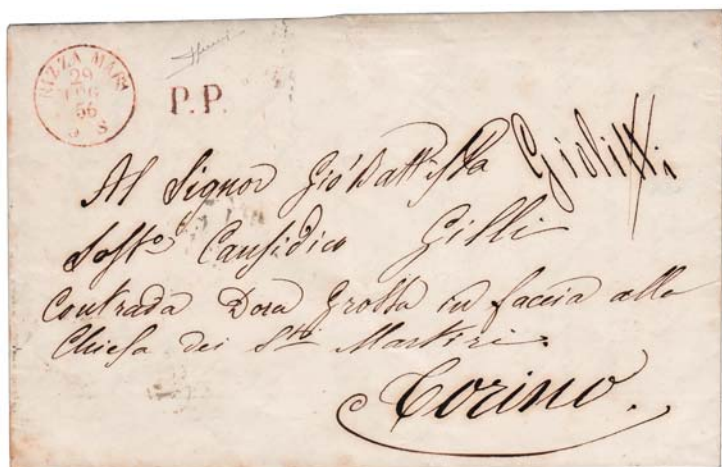 NIZZA MAR
29
LUG
56
S
P.P.
Al Signor Gio Battista Giolitti
Sost° Causidico Gilli
Contrada Dora Grossa in faccia alla
Chiesa dei Sti Martiri.
Torino.